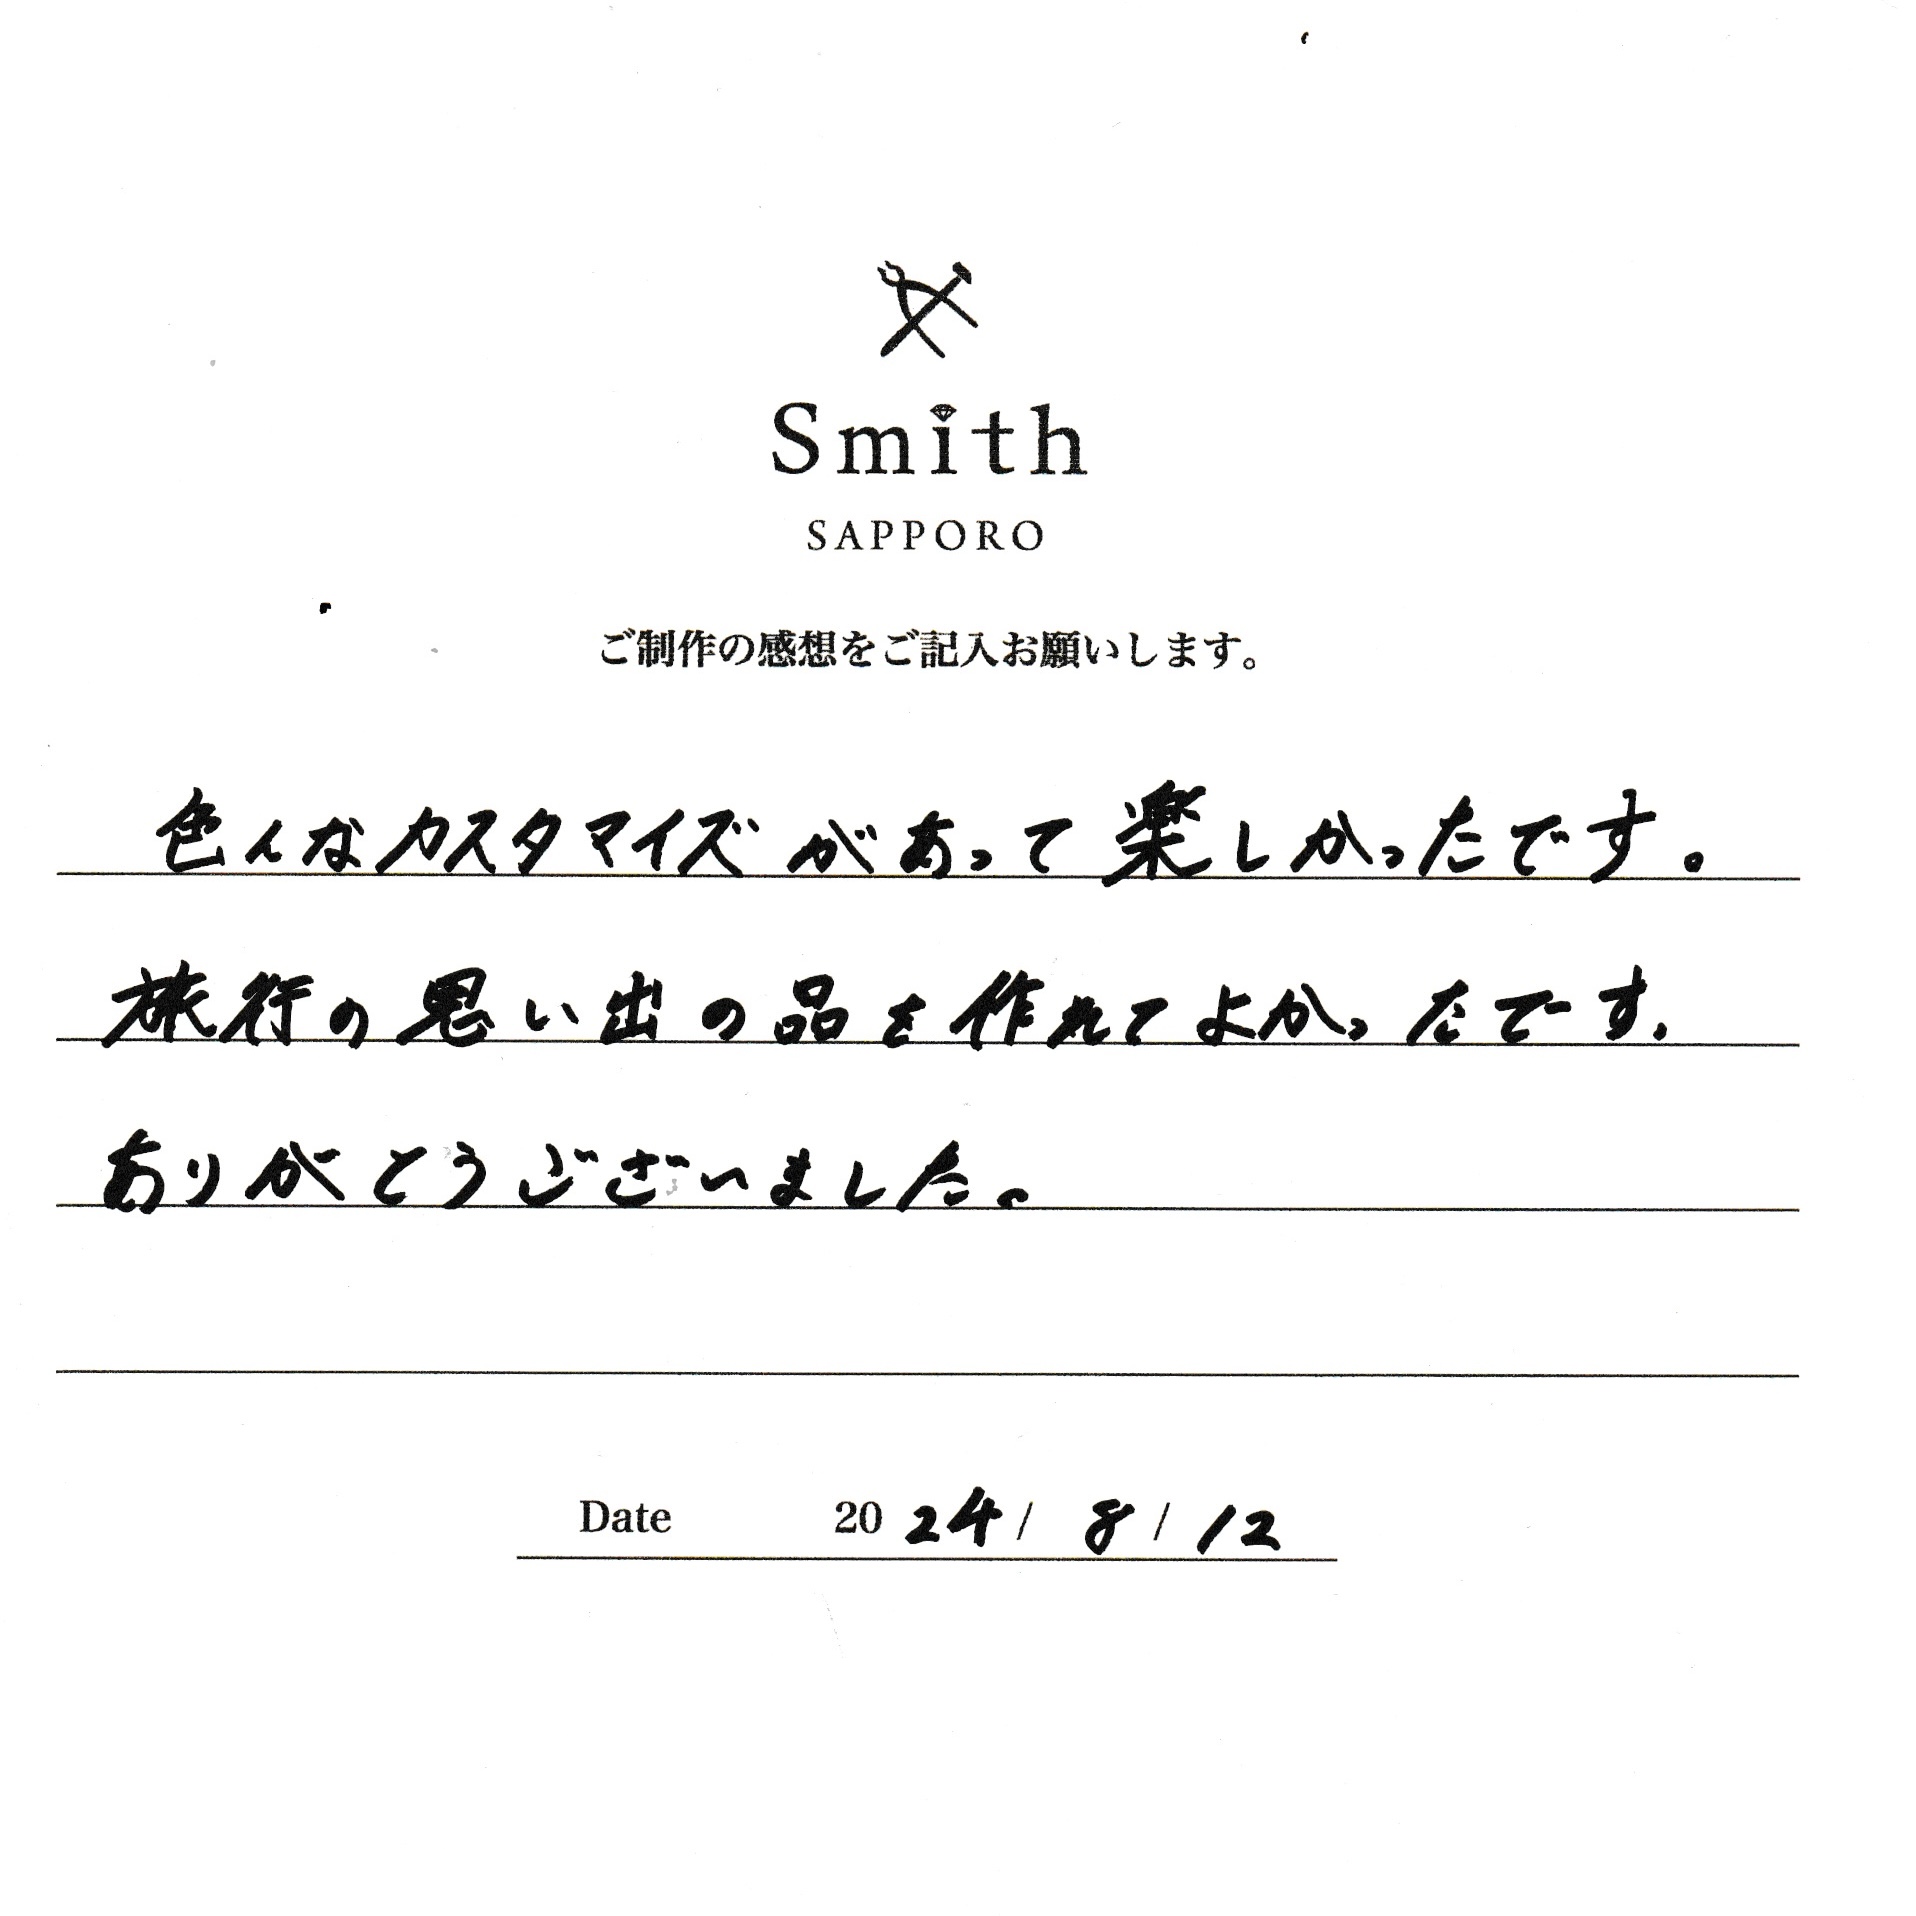 Smith
SAPPORO
ご制作の感想をご記入お願いします。
色んなカスタマイズがあって楽しかったです。
旅行の思い出の品を作れてよかったです。
ありがとうございました。
Date 2024/8/12